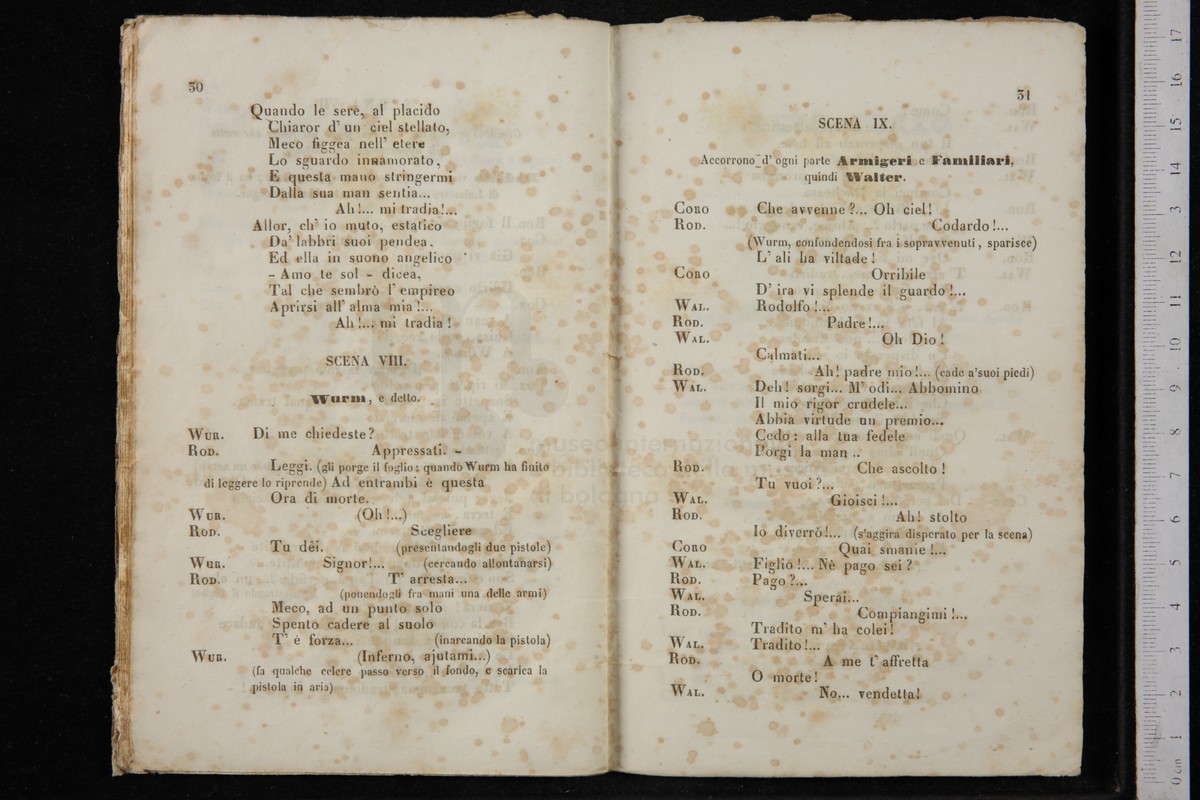 30
Quando le sere, al placido
Chiaror d' un ciel stellato,
Meco figgea nell' etere
Lo sguardo innamorato,
E questa mano stringermi
Dalla sua man sentia...
Ah!... mi tradia!...
Allor, ch' io muto, estatico
Da' labbri suoi pendea,
Ed ella in suono angelico
- Amo te sol - dicea,
Tal che sembrò l' empireo
Aprirsi all' alma mia!...
Ah!... mi tradia!
SCENA VIII.
Wurm, e detto.
Wur. Di me chiedeste?
Rod. Appressati. -
Leggi. (gli porge il foglio: quando Wurm ha finito
di leggere lo riprende) Ad entrambi è questa
Ora di morte.
Wur. (Oh!...)
Rod. Scegliere
Tu dêi. (presentandogli due pistole)
Wur. Signor!... (cercando allontanarsi)
Rod. T' arresta...
(ponendogli fra mani una delle armi)
Meco, ad un punto solo
Spento cadere al suolo
T' è forza... (inarcando la pistola)
Wur. (Inferno, ajutami...)
(fa qualche celere passo verso il fondo, e scarica la
pistola in aria)
31
SCENA IX.
Accorrono d' ogni parte Armigeri e Familiari,
quindi Walter.
Coro Che avvenne?... Oh ciel!
Rod. Codardo!...
(Wurm, confondendosi fra i sopravvenuti, sparisce)
L' ali ha viltade!
Coro Orribile
D' ira vi splende il guardo!...
Wal. Rodolfo!...
Rod. Padre!...
Wal. Oh Dio!
Calmati...
Rod. Ah! padre mio!... (cade a'suoi piedi)
Wal. Deh! sorgi... M' odi... Abbomino
Il mio rigor crudele...
Abbia virtude un premio...
Cedo: alla tua fedele
Porgi la man ..
Rod. Che ascolto!
Tu vuoi?...
Wal. Gioisci!...
Rod. Ah! stolto
Io diverrò!... (s'aggira disperato per la scena)
Coro Quai smanie!...
Wal. Figlio!... Nè pago sei?
Rod. Pago?...
Wal. Sperai...
Rod. Compiangimi!...
Tradito m' ha colei!
Wal. Tradito!...
Rod. A me t' affretta
O morte!
Wal. No... vendetta!
museo internazionale
biblioteca della musica
di bologna
0 cm 1 2 3 4 5 6 7 8 9 10 11 12 13 14 15 16 17